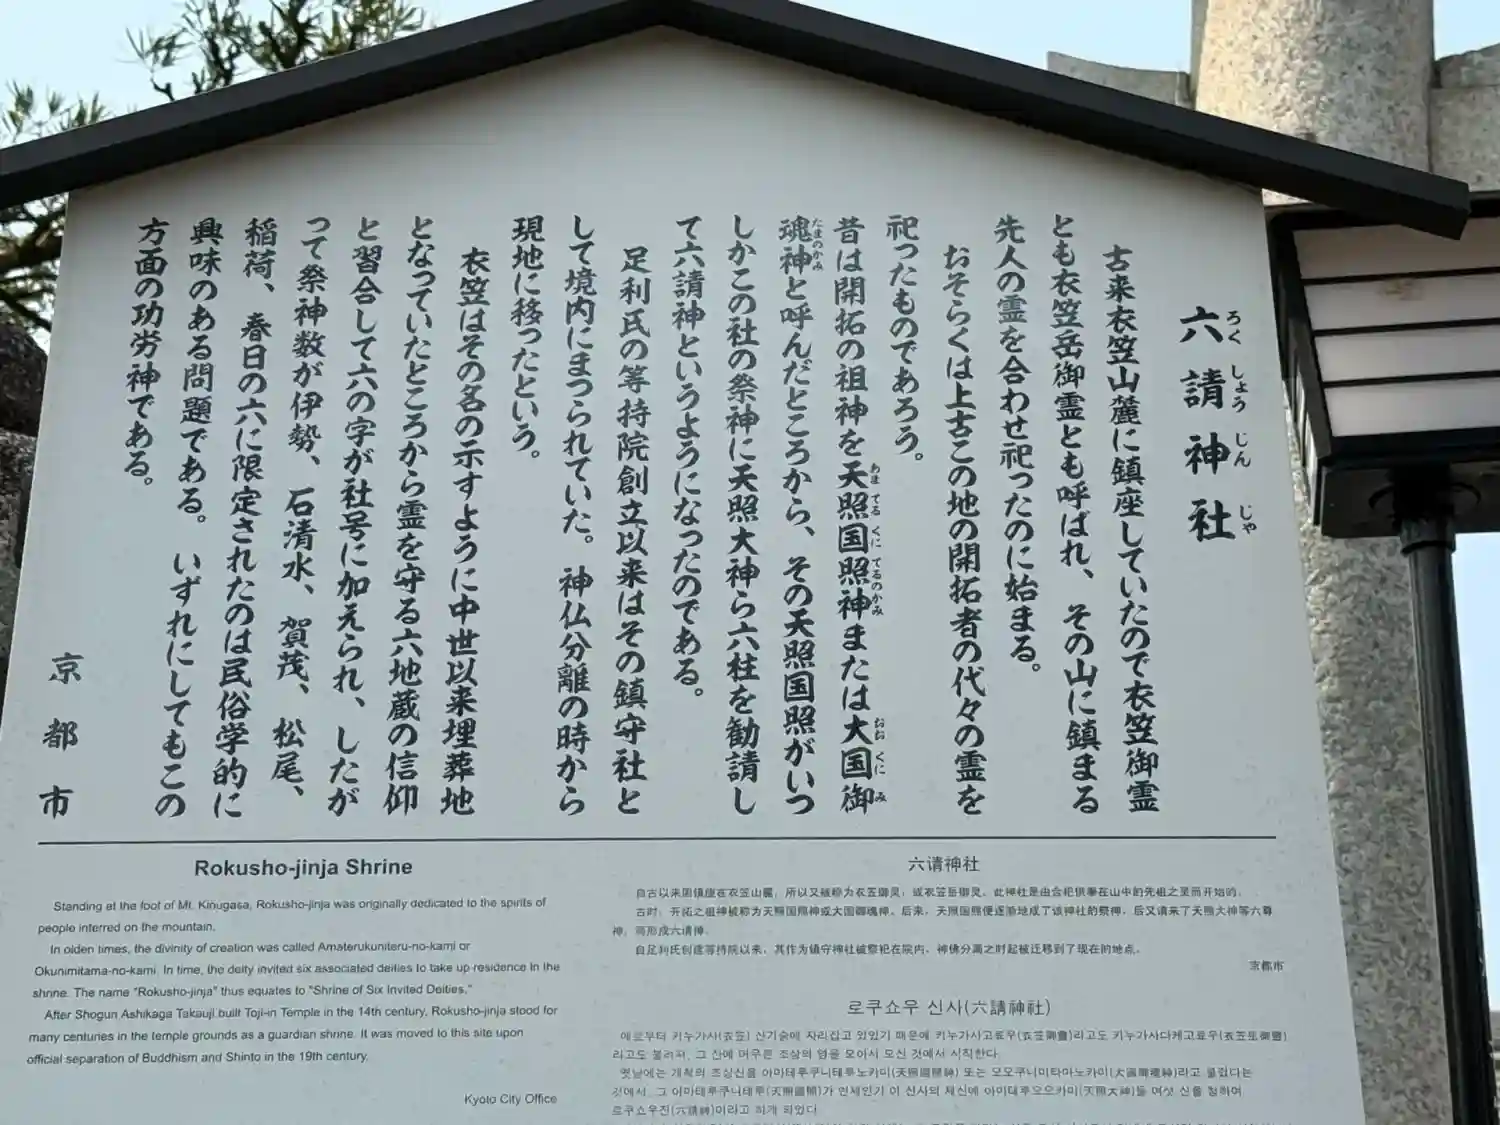 六請神社
ろくしょうじんじゃ
古来衣笠山麓に鎮座していたので衣笠御霊
とも衣笠岳御霊とも呼ばれ、その山に鎮まる
先人の霊を合わせ祀ったのに始まる。
おそらくは上古この地の開拓者の代々の霊を
祀ったものであろう。
昔は開拓の祖神を天照国照神または大国御
あまてるくにてるのかみ
おおくにみ
魂神と呼んだところから、その天照国照がいつ
たまのかみ
しかこの社の祭神に天照大神ら六柱を勧請し
て六請神というようになったのである。
足利氏の等持院創立以来はその鎮守社と
して境内にまつられていた。神仏分離の時から
現地に移ったという。
衣笠はその名の示すように中世以来埋葬地
となっていたところから霊を守る六地蔵の信仰
と習合して六の字が社号に加えられ、したが
って祭神数が伊勢、石清水、賀茂、松尾、
稲荷、春日の六に限定されたのは民俗学的に
興味のある問題である。いずれにしてもこの
方面の功労神である。
京都市
Rokusho-jinja Shrine
Standing at the foot of Mt. Kinugasa, Rokusho-jinja was originally dedicated to the spirits of
people interred on the mountain.
In olden times, the divinity of creation was called Amaterukuniteru-no-kami or
Okunimitama-no-kami. In time, the deity invited six associated deities to take up residence in the
shrine. The name "Rokusho-jinja" thus equates to "Shrine of Six Invited Deities."
After Shogun Ashikaga Takauji built Toji-in Temple in the 14th century, Rokusho-jinja stood for
many centuries in the temple grounds as a guardian shrine. It was moved to this site upon
official separation of Buddhism and Shinto in the 19th century.
Kyoto City Office
六请神社
自古以来因镇座在衣笠山麓，所以又被称为衣笠御灵，或衣笠岳御灵，此神社是由合祀供奉在山中的先祖之灵而开始的。
古时，开拓之祖神被称为天照国照神或大国御魂神，后来，天照国照便逐渐地成了该神社的祭神，后又请来了天照大神等六尊
神，而形成六请神。
自足利氏创建等持院以来，其作为镇守神社被祭祀在院内，神佛分离之时起被迁移到了现在的地点。
京都市
로쿠쇼우 신사(六請神社)
예로부터 키누가사(衣笠) 산기슭에 자리잡고 있었기 때문에 키누가사고료우(衣笠御靈)라고도 키누가사다케고료우(衣笠岳御靈)
라고도 불려져, 그 산에 머무른 조상의 영을 모아서 모신 것에서 시작한다.
옛날에는 개척의 조상신을 아마테루쿠니테루노카미(天照國照神) 또는 오오쿠니미타마노카미(大國御魂神)라고 불렀다는
것에서, 그 아마테루쿠니테루(天照國照)가 언제인가 이 신사의 제신에 아마테루오오카미(天照大神)등 여섯 신을 청하여
로쿠쇼우진(六請神)이라고 하게 되었다.